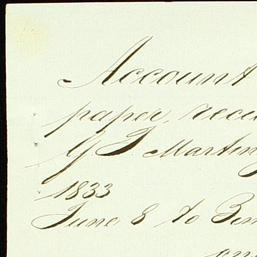 Account
paper, rece
G. T. Martin
1833
June 8 to Ben
an